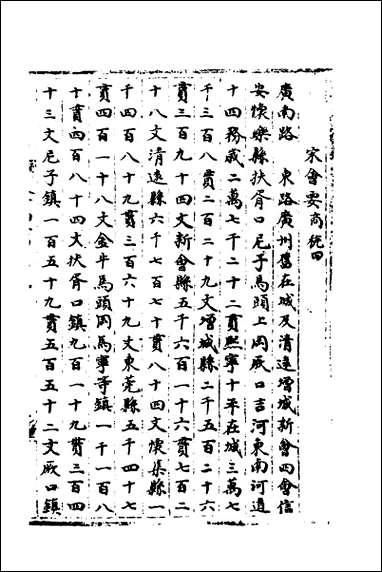 宋會要 商稅四
廣南路　東路廣州舊在城及清遠增城新會四會信
安懷樂縣扶胥口尼子馬頭上岡厥口吉河東南河道
十四務歲二萬七千二十二貫熙寧十年在城三萬七
千三百八貫二百二十九文增城縣二千五百二十六
貫三百九十四文新會縣五千六百一十六貫七百二
十八文清遠縣六千七百七十貫八十四文懷集縣一
千四百八十九貫三百六十九文東莞縣五千四十七
貫四百一十八文金斗馬頭岡馬寧等鎮一千一百八
十貫四百八十四文扶胥口鎮九百一十九貫三百四
十三文尼子鎮一百五十九貫五百五十二文厥口鎮